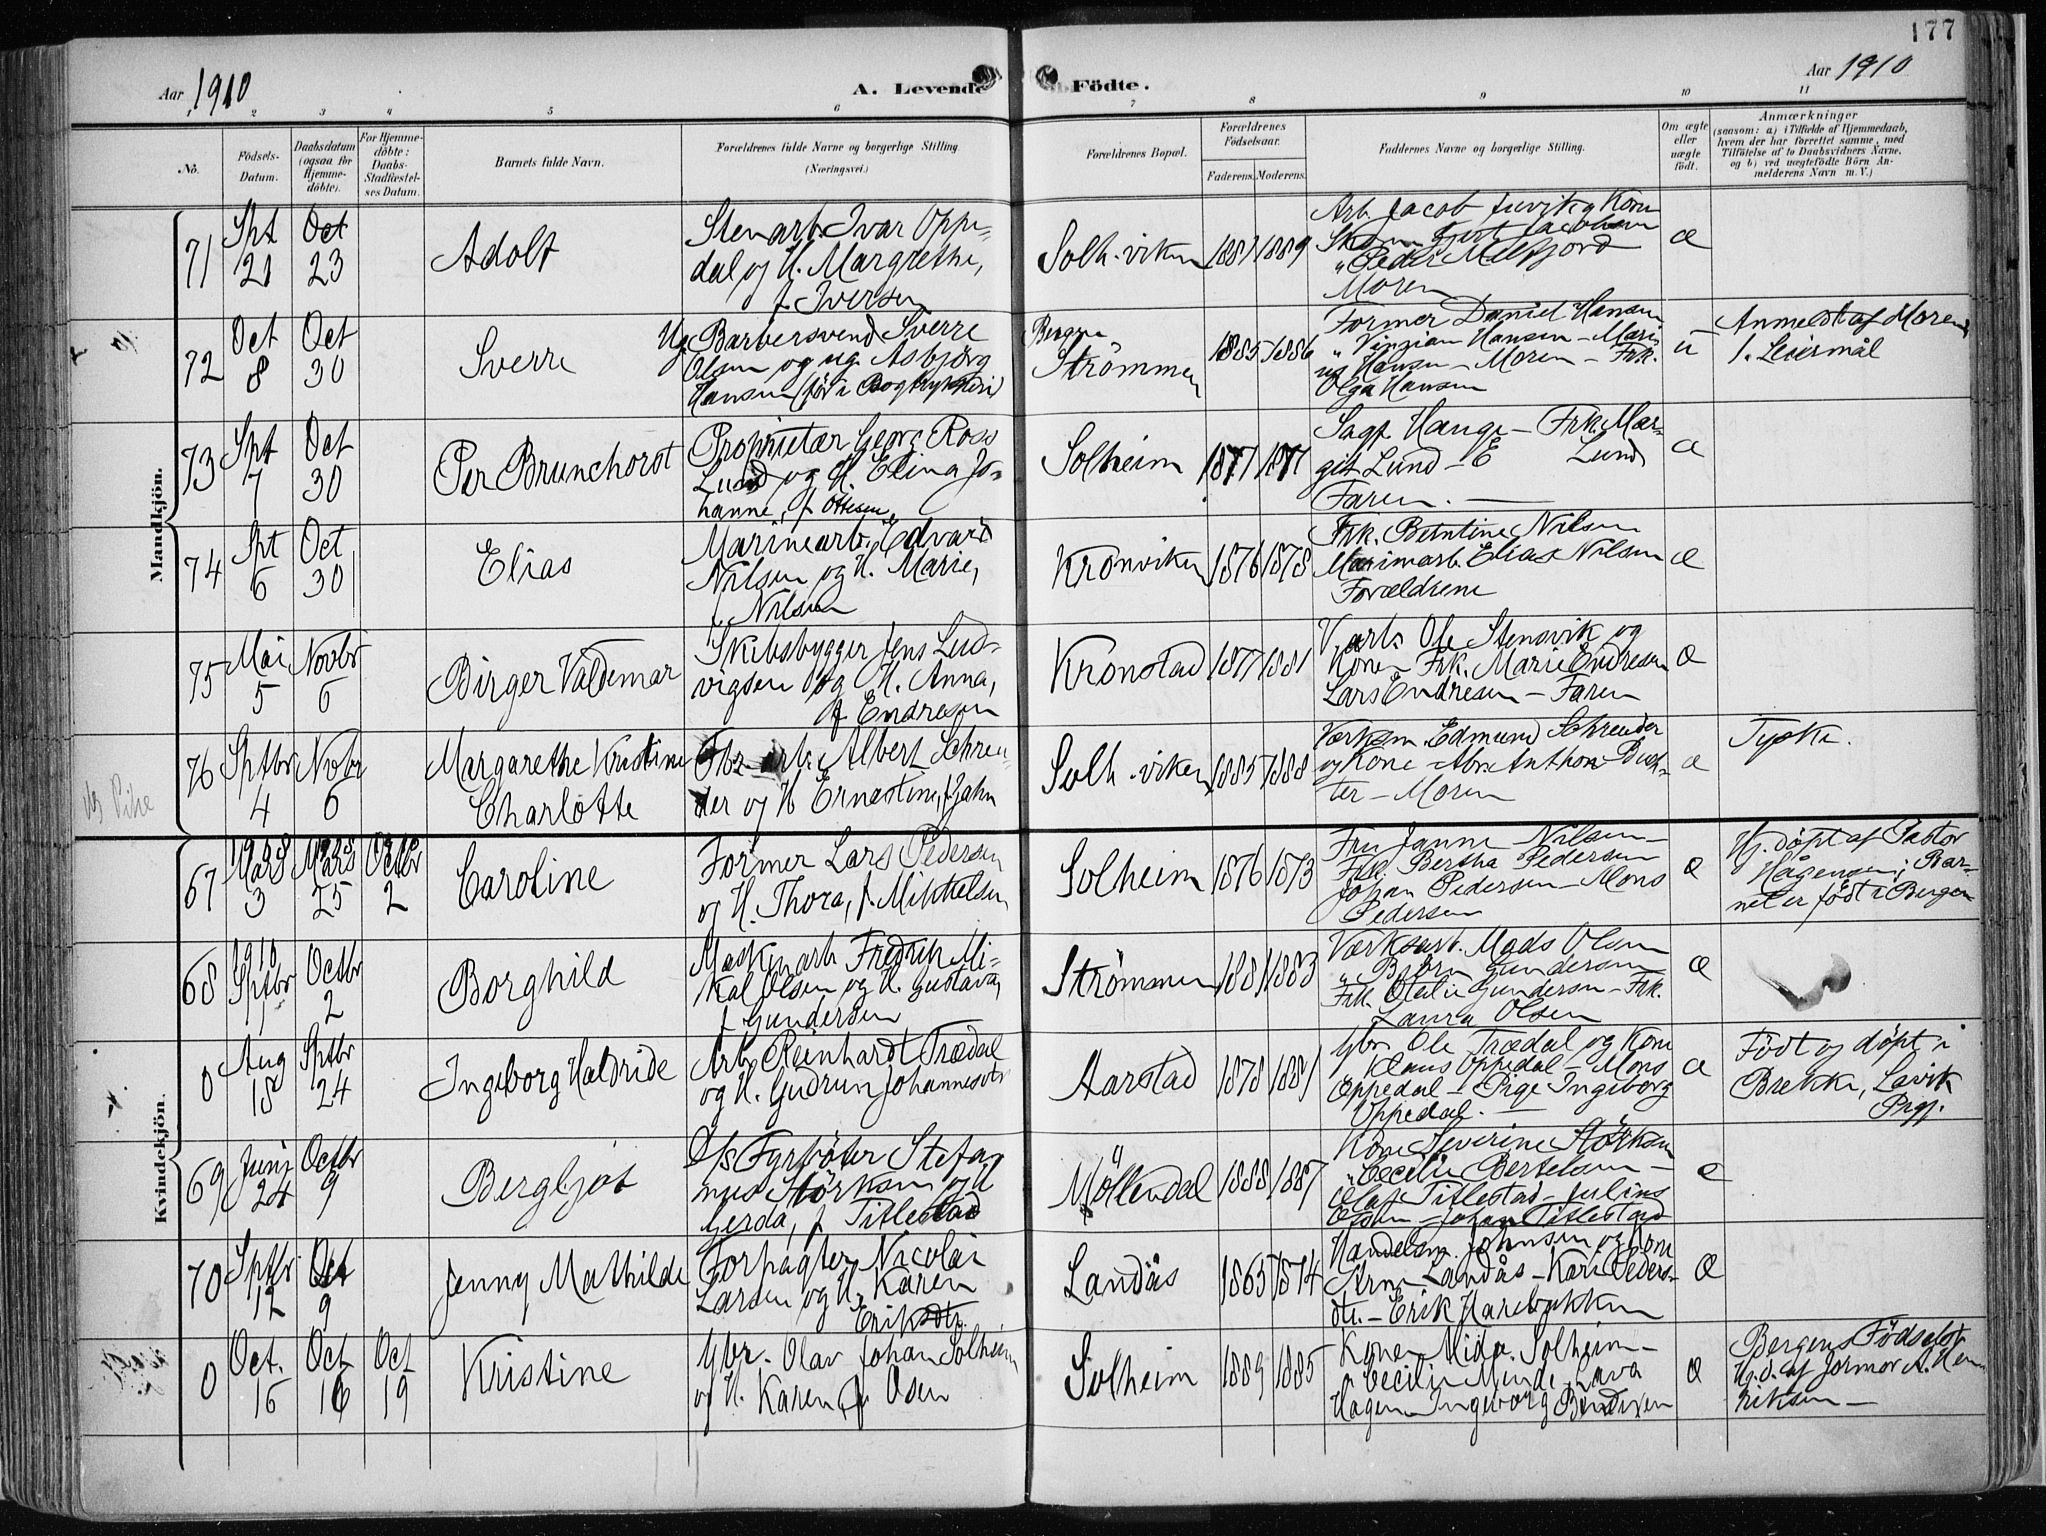 177
Aar 1910
A. Levende Födte.
Aar 1910
1 2 3 4 5 6 7 8 9 10 11
No.
Födsels-Datum.
Daabsdatum (ogsaa for Hjemmedöbte).
For Hjemmedöbte: Daabs-Stadfestelses Datum.
Barnets fulde Navn.
Forældrenes fulde Navne og borgerlige Stilling. (Næringsvei.)
Forældrenes Bopæl.
Forældrenes Födselsaar.
Faderens. Moderens.
Faddernes Navne og borgerlige Stilling.
Om ægte eller uægte födt.
Anmærkninger
(saasom: a) i Tilfælde af Hjemmedaab, hvem der har forrettet samme, med Tilföielse af to Daabsvidners Navne, og b) ved uegtefödte Börn Anmelderens Navn m. V.)
Mandkjön.
71 Spt 21 Oct 23 Adolf
Stenarb. Ivar Oppe-
dal og H. Margrethe,
f. Iversen
Solh.viken 1881 1889
Arb. Jacob Juvik og Kone
Peder Melfjord
Moren
æ
72 Oct 8 Oct 30 Sverre
Ug Barbersvend Sverre
Olsen og ug. Asbjörg
Hansen
Bergen
Strömmen 1885 1886
Former Daniel Hansen
Hansen – Mari-
us Hansen – Moren – Frk.
Olga Hansen
u
Anmeldt af Moren
1. Leiermål
73 Spt 7 Oct 30 Per Brunchorst
Proprietær Georg Ross
Lund og H. Elina Jo-
hanne, f. Ottesen
Solheim 1877 1877
Sagf. Hauge – Frk. Mar-
git Lund – E Lund
Faren.
æ
74 Spt 6 Oct 30 Elias
Marinearb. Edvard
Nilsen og H. Marie,
f. Nilsen
Kronviken 1876 1878
Frk. Berntine Nilsen
Marinearb. Elias Nilsen
Forældrene
æ
75 Mai 5 Novbr 6 Birger Valdemar
Skibsbygger Jens Lud-
vigsen og H. Anna,
f. Endresen
Kronstad 1877 1881
V.arb. Ole Stensvik og
Kone – Frk. Marie Endresen
Lars Endresen – Faren
æ
76 Sptbr 4 Novbr 6 Margarethe Kristine
Charlotte
Fbr.arb. Albert Schreu-
der og H. Ernestine, f. Jahn
Solh.viken 1885 1888
Værksm. Edmund Schreuder
og Kone – Anthon
Moren
æ
Tyske.
Kvindekjön.
67 1908 Mars 3 1908 Mars 25 1910 Octbr 2 Caroline
Former Lars Pedersen
og H. Thora, f. Mikkelsen
Solheim 1876 1873
Fru Janna Nilsen –
Frk. Bertha Pedersen
Johan Pedersen – Mons
Pedersen
æ
Hj. döpt af Pastor
Hågensen; Bar-
net er født i Bergen
68 1910 Sptbr 1 Octbr 2 Borghild
Maskinarb. Fredrik Mi-
kal Olsen og H. Gustava,
f. Gundersen
Strömmen 1881 1883
Værksarb. Mads Olsen
" Björn Gundersen
Frk. Otelie Gundersen – Frk.
Laura Olsen
æ
0 Aug 15 Sptbr 24 Ingeborg Haldride
Arb. Reinhardt Trædal
og H. Gudrun Johannesdtr
Aarstad 1878 1881
Gbr. Ole Trædal og Kone
" Klaus Oppedal – Mons
Oppedal – Pige Ingeborg
Oppedal.
æ
Födt og döpt i
Brekke, Lavik
Prgj.
69 Juni 24 Octbr 9 Bergljot
D/s Fyrböter Stefa-
nus Störksen og H.
Gerda, f. Titlestad
Möllendal 1888 1887
Kone Severine Störksen
" Cecilie Bertelsen –
Olaf Titlestad – Julius
– Johan Titlestad
æ
70 Sptbr 12 Oct 9 Jenny Mathilde
Forpagter Nicolai
Larsen og H. Karen
Eriksdtr.
Landås 1863 1874
Handelsm. Johnsen og Kone
Arne Landås – Kari Peders-
dtr. – Erik Harebakken
æ
0 Oct. 15 Oct 16 Oct 19 Kristine
Gbr. Olav Johan Solheim
og H. Karen, f. Osen
Solheim 1889 1885
Kone Mida Solheim –
" Cecilie Minde Lava
Hagen – Ingeborg Bendixen
æ
Bergens Fødselst.
Hj.d. af Jormor A. Hen-
riksen –